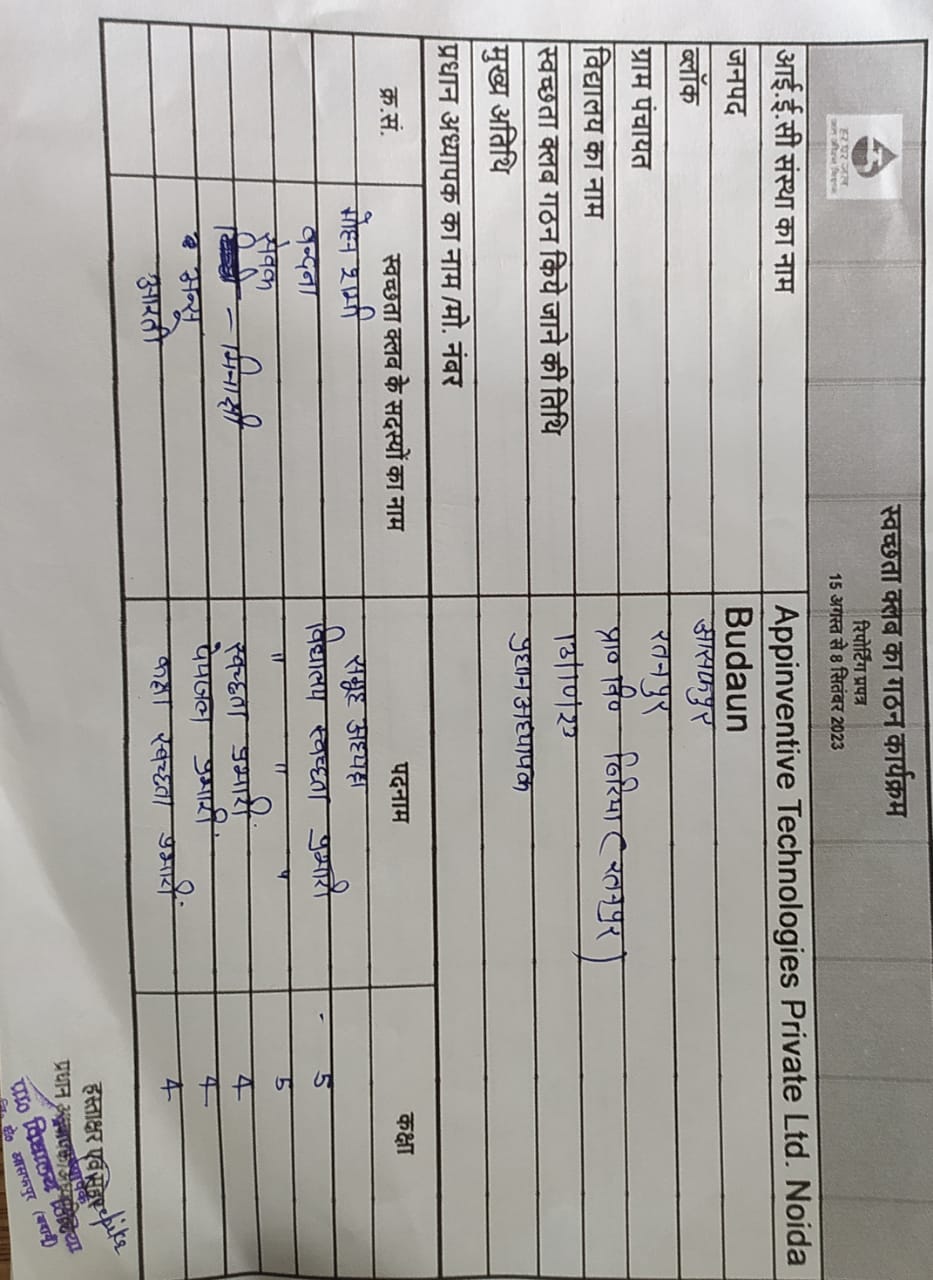 स्वच्छता क्लब का गठन कार्यक्रम
रिपोर्टिंग प्रपत्र
15 अगस्त से 8 सितंबर 2023
हर घर जल
जल जीवन मिशन
आई.ई.सी संस्था का नाम Appinventive Technologies Private Ltd. Noida
जनपद Budaun
ब्लॉक आसफपुर
ग्राम पंचायत रतनपुर
विद्यालय का नाम प्रा० वि० (रतनपुर)
स्वच्छता क्लब गठन किये जाने की तिथि
मुख्य अतिथि प्रधानअध्यापक
प्रधान अध्यापक का नाम /मो. नंबर
क्र.सं. स्वच्छता क्लब के सदस्यों का नाम पदनाम कक्षा
मोहन शर्मा समूह अध्यक्ष -
वन्दना विद्यालय स्वच्छता प्रभारी 5
सेवक " " " 5
– मिनाक्षी स्वच्छता प्रभारी 4
अन्सु पेयजल प्रभारी 4
आरती कक्षा स्वच्छता प्रभारी 4
हस्ताक्षर एवं मुहर
प्रधान
विद्यालय
आसफपुर (बदायूँ)